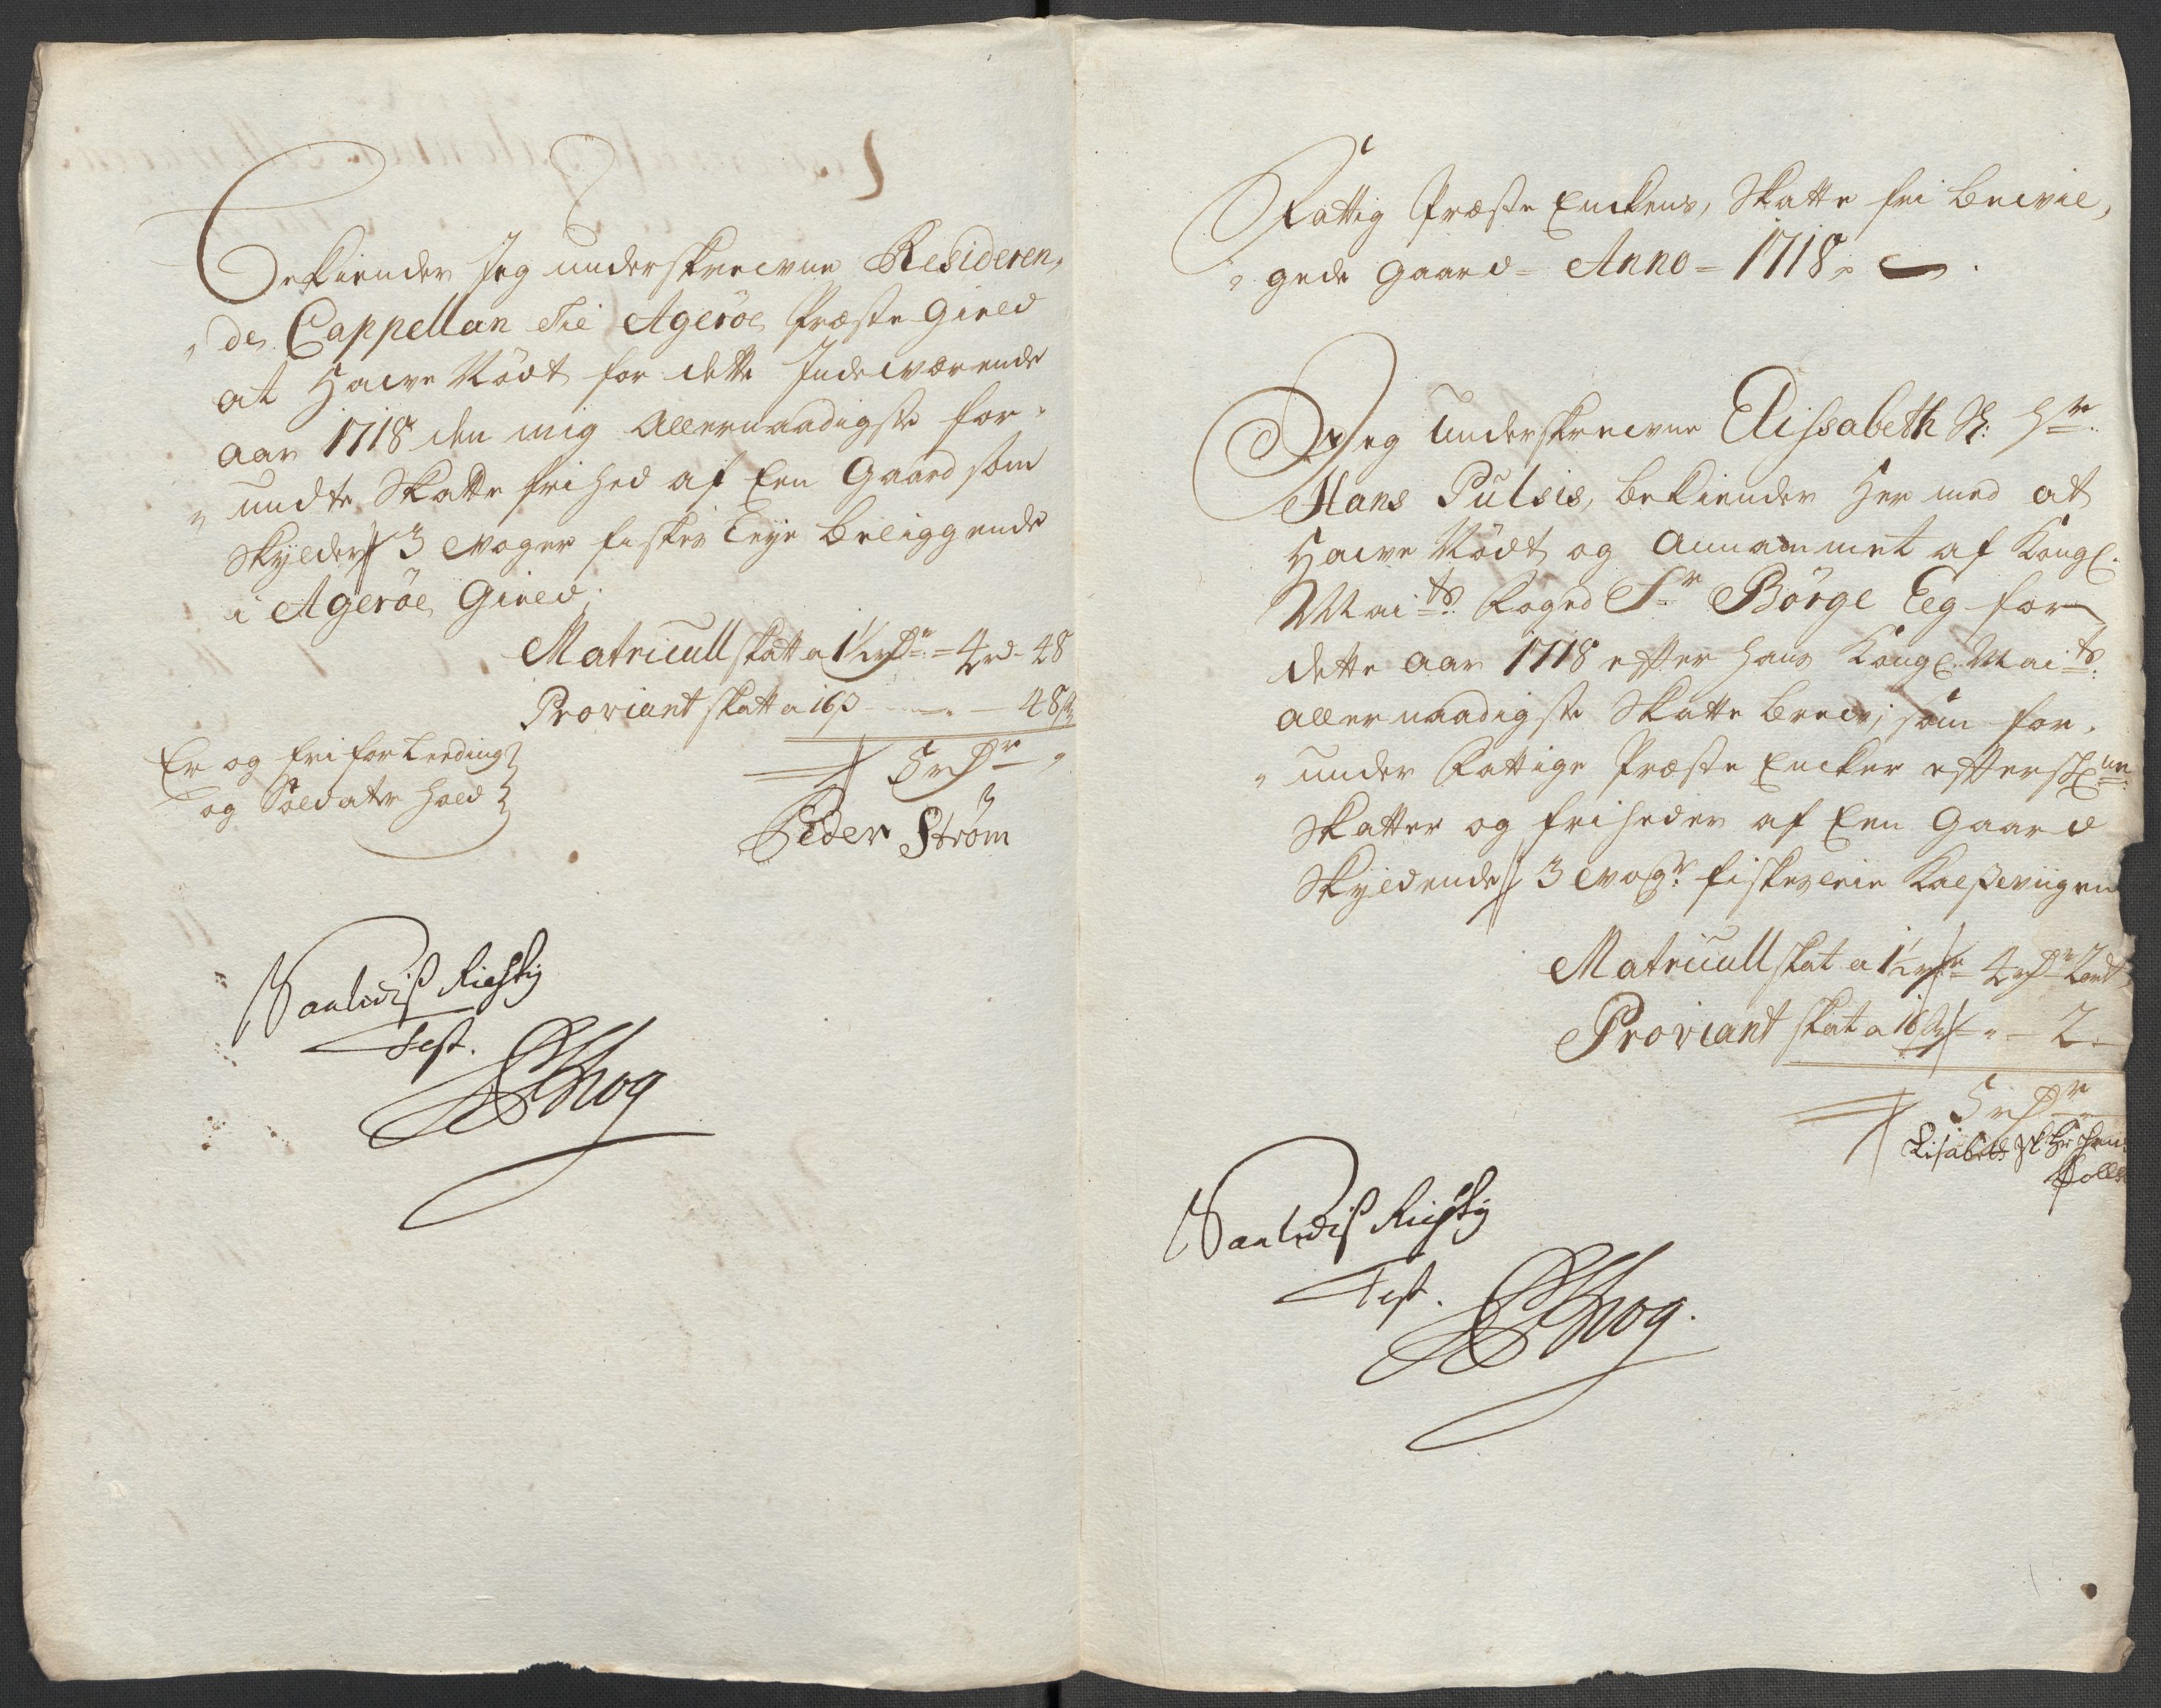 Bekiender Jeg underskrevne Resideren,
de Cappellan til Agerøe Præste Gield
at Hawe Nødt for dette Indeværende
aar 1718 den mig Allernaadigste for-
undte Skatte frihed af Een Gaard som
Skylder 3 woger fiskes Leye beliggende
i Agerøe Gield.
Matricull skatt a 1½ rdr = 4 rd - 48
Proviant skatt a 16 s - 48 s
5 rdr
Er og fri for Leeding
og Soldater hold
Peder Strøm
Saaledis Rigtig
Test.
Fattig Præste Enckens, Skatte fri bevil,
gede gaard - Anno - 1718
Jeg Underskrevne Elissabeth Sl: Hr:
Hans Pulsis, bekiender Her med at
Hawe Nødt og Annammet af Kongl.
Maits: Foged Sr Børge Eeg for
dette Aar 1718 efter hans Kongl. Maits:
allernaadigste Skatte brew, som for-
under Fattige Præste Encker efterskne:
Skatter og friheder af Een Gaard
Skyldende 3 wogr: fiskesleie Kalsswiigen
Matricull skat a 1½ rdr 4 rdr 2 ort
Proviant skat a 16 s - 2
5 rdr
Lisabeth Sl Hr Hans
Saaledis Rigtig
Test.